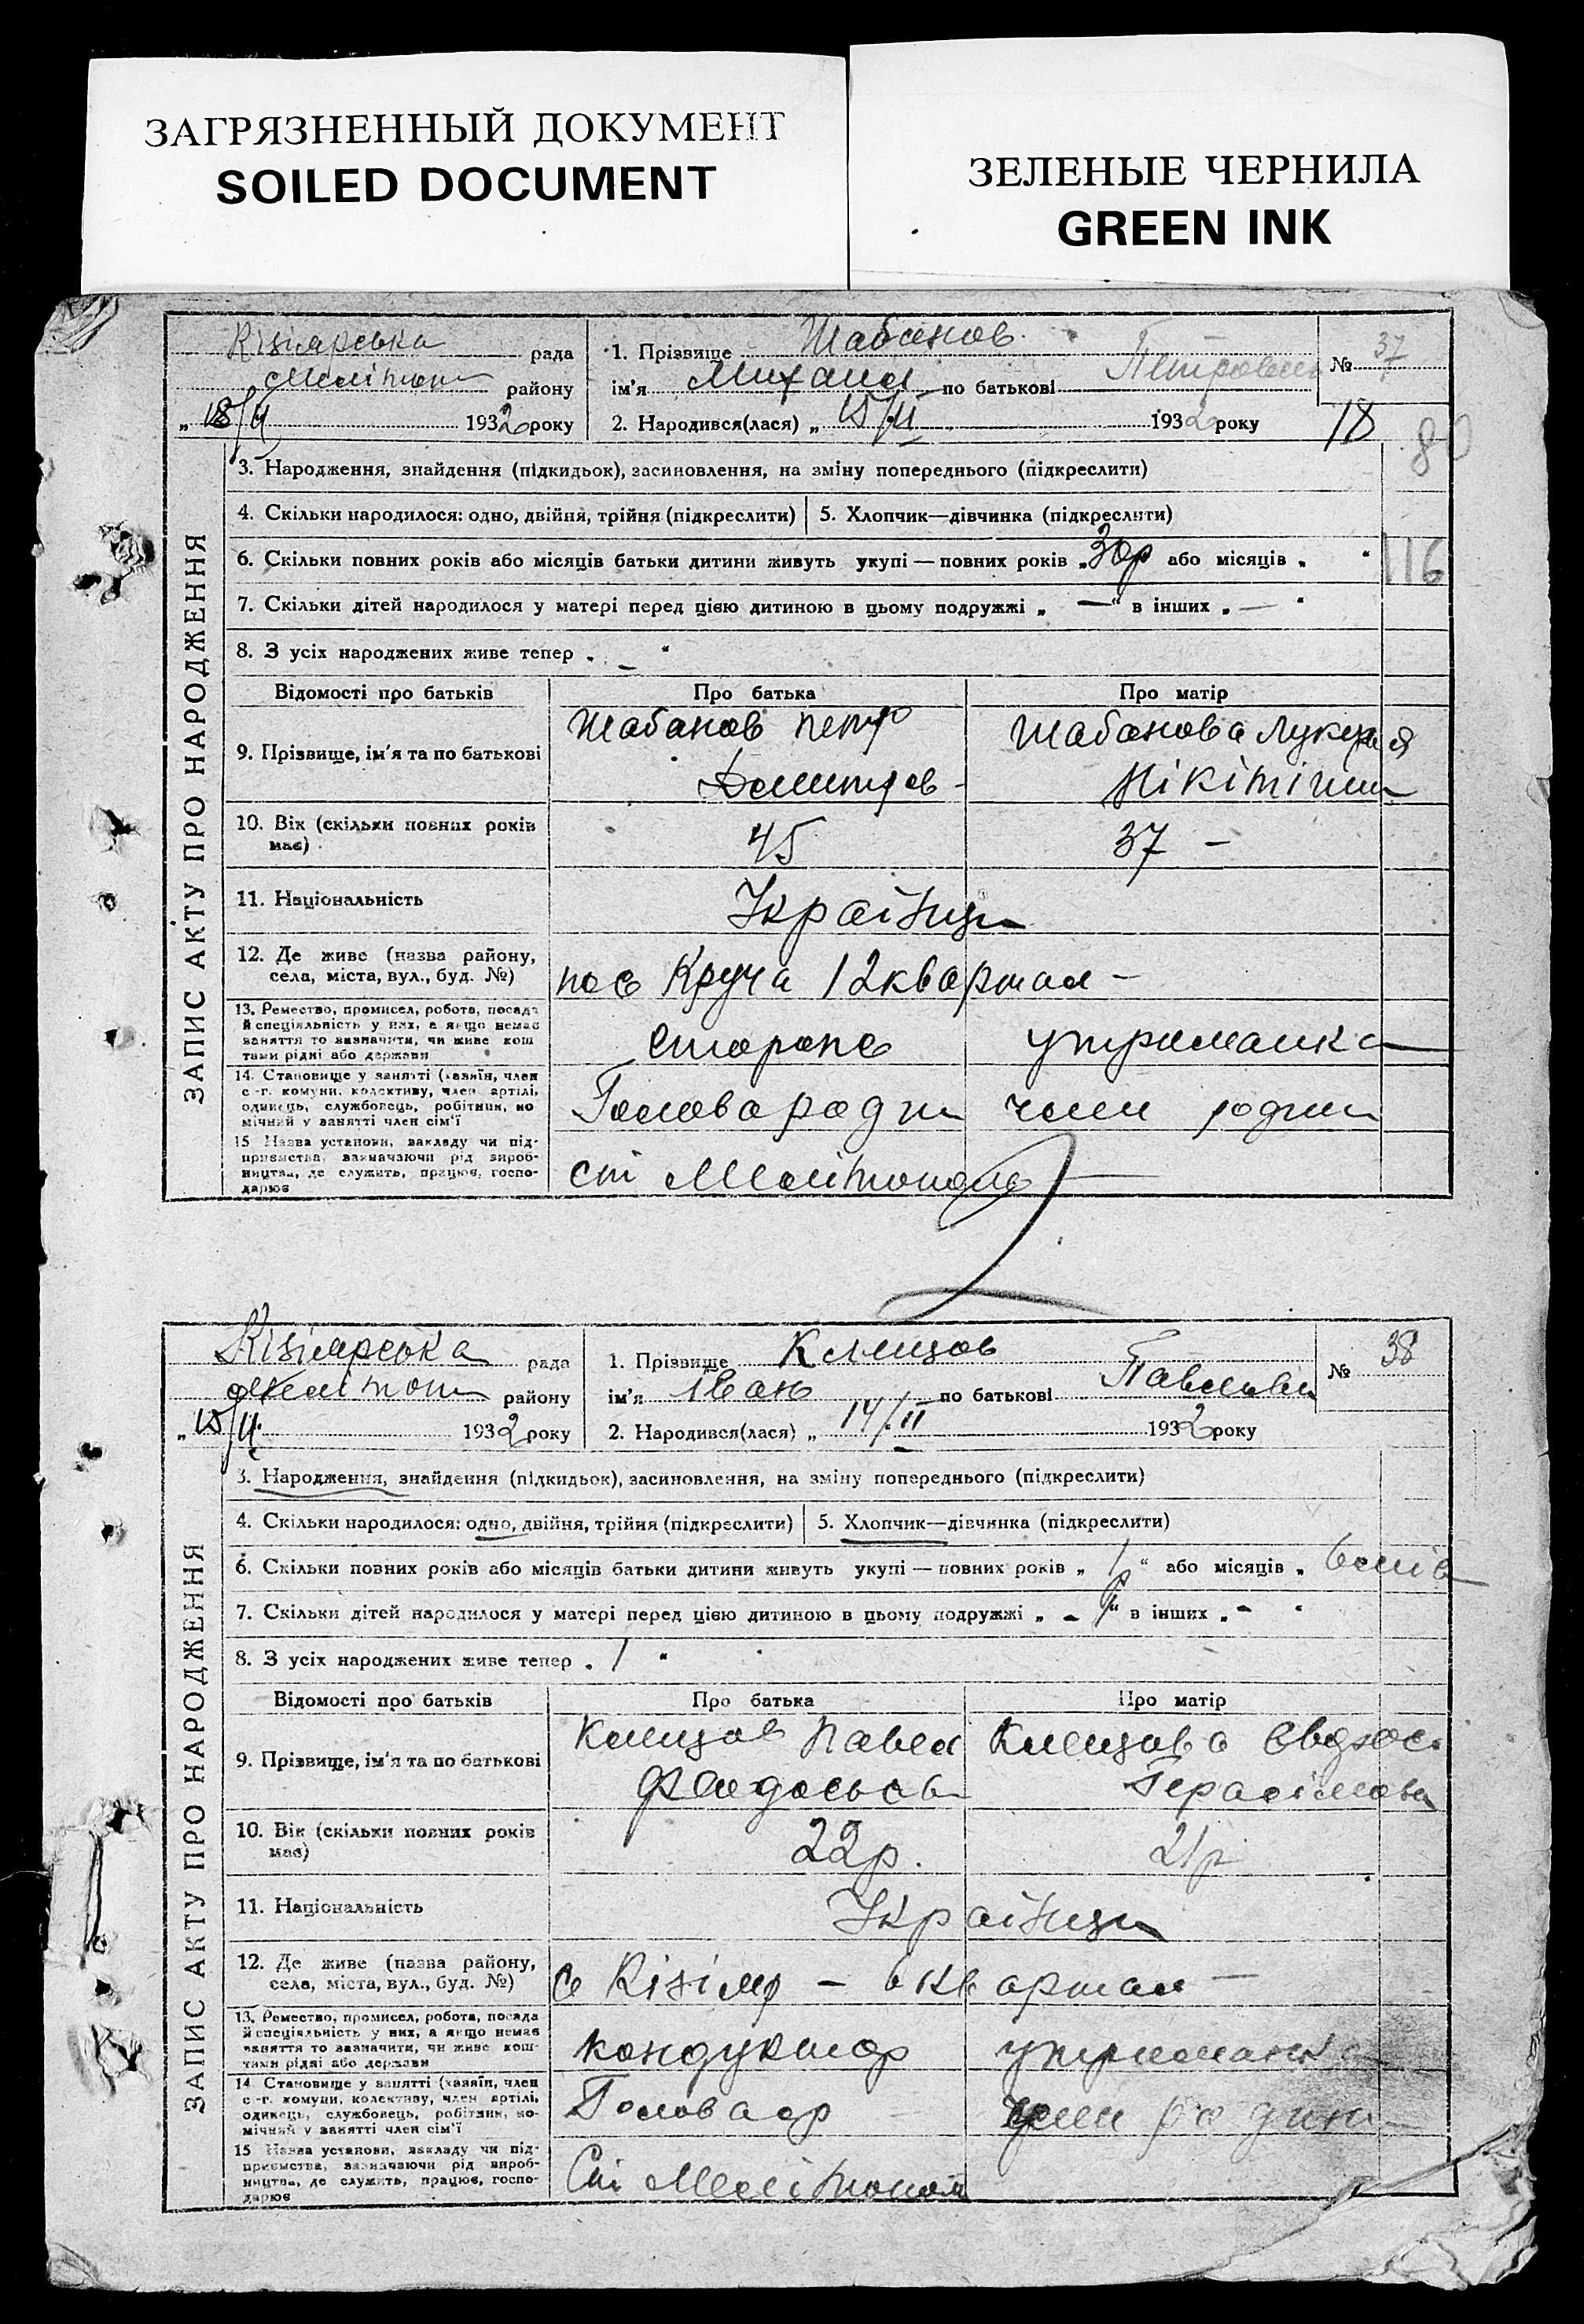 ЗАГРЯЗНЕННЫЙ ДОКУМЕНТ
SOILED DOCUMENT
ЗЕЛЕНЫЕ ЧЕРНИЛА
GREEN INK
ЗАПИС АКТУ ПРО НАРОДЖЕННЯ
Кізіярська рада
Мелітоп району
„ 18/II 1932 року
1. Прізвище Шабанов
ім'я Михаил по батькові Петрович
2. Народився(лася) „ 15/II 1932 року
№ 37
18
80
3. Народження, знайдення (підкидьок), засиновлення, на зміну попереднього (підкреслити)
4. Скільки народилося: одно, двійня, трійня (підкреслити) 5. Хлопчик—дівчинка (підкреслити)
6. Скільки повних років або місяців батьки дитини живуть укупі — повних років „ або місяців „ “
116
7. Скільки дітей народилося у матері перед цією дитиною в цьому подружжі „ — “ в інших „ — “
8. З усіх народжених живе тепер „ – “
Відомості про батьків Про батька Про матір
9. Прізвище, ім'я та по батькові Шабанов Петр Шабанова Лукерія
Дмитров Нікітічн
10. Вік (скільки повних років має) 45 37 –
11. Національність Українці
12. Де живе (назва району, села, міста, вул., буд. №) пос Круча 12 квартал –
13. Ремество, промисел, робота, посада й спеціяльність у них, а якщо немає заняття то зазначити, чи живе кош тами рідні або держави сторож утриманка
14. Становище у занятті (хазяїн, член с.-г. комуни, колективу, член артілі, одинець, службовець, робітник, по мічний у занятті член сім'ї Голова родин член родин
15 Назва установи, закладу чи під- приємства, зазначаючи рід вироб- ництва, де служить, працює, госпо- дарює ст Мелітополь
ЗАПИС АКТУ ПРО НАРОДЖЕННЯ
Кізіярська рада
Мелітоп району
„ 15/II 1932 року
1. Прізвище Клецов
ім'я Іван по батькові Павлович
2. Народився(лася) „ 14/II 1932 року
№ 38
3. Народження, знайдення (підкидьок), засиновлення, на зміну попереднього (підкреслити)
4. Скільки народилося: одно, двійня, трійня (підкреслити) 5. Хлопчик—дівчинка (підкреслити)
6. Скільки повних років або місяців батьки дитини живуть укупі — повних років „ 1р “ або місяців „ 6 міс
7. Скільки дітей народилося у матері перед цією дитиною в цьому подружжі „ – “ в інших „ – “
8. З усіх народжених живе тепер „ 1 “
Відомості про батьків Про батька Про матір
9. Прізвище, ім'я та по батькові Клецов Павел Клецова Євдок
Федосьов Герасімовн
10. Вік (скільки повних років має) 22р. 21р
11. Національність Українці
12. Де живе (назва району, села, міста, вул., буд. №) с Кізіяр – 6 квартал –
13. Ремество, промисел, робота, посада й спеціяльність у них, а якщо немає заняття то зазначити, чи живе кош- тами рідні або держави кондуктор утриманка
14 Становище у занятті (хазяїн, член с.-г. комуни, колективу, член артілі, одинець, службовець, робітник, по- мічний у занятті член сім'ї Голова ср член родини
15 Назва установи, закладу чи під- приємства, зазначаючи рід вироб- ництва, де служить, працює, госпо- дарює Ст Мелітополь